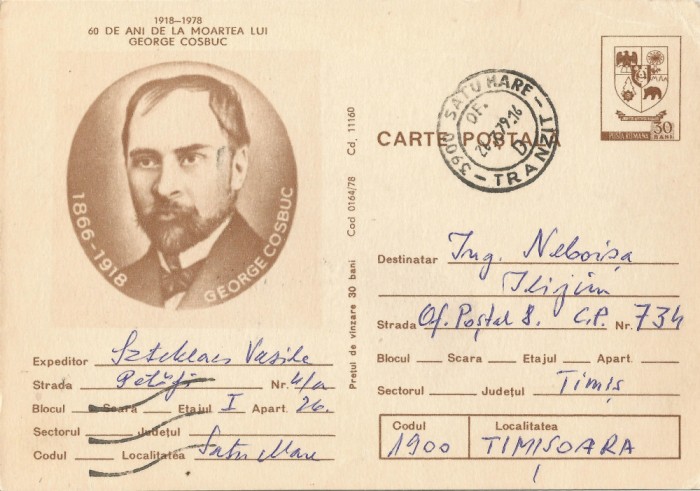 1918-1978
60 DE ANI DE LA MOARTEA LUI
GEORGE COSBUC
1866-1918
GEORGE COSBUC
Expeditor Vasile
Strada Petőfi Nr. 4/a
Blocul Scara Etajul I Apart. 26.
Sectorul Județul
Codul Localitatea Satu Mare
Prețul de vînzare 30 bani Cod 0164/78 Cd. 11160
CARTE POSTALA
3900 SATU MARE
OF.
TRANZIT
POSTA ROMANA 30
BANI
Destinatar Ing. Neboișa
Strada Of. Poștal 8. C.P. Nr. 734
Blocul Scara Etajul Apart.
Sectorul Județul Timiș
Codul Localitatea
1900 TIMISOARA